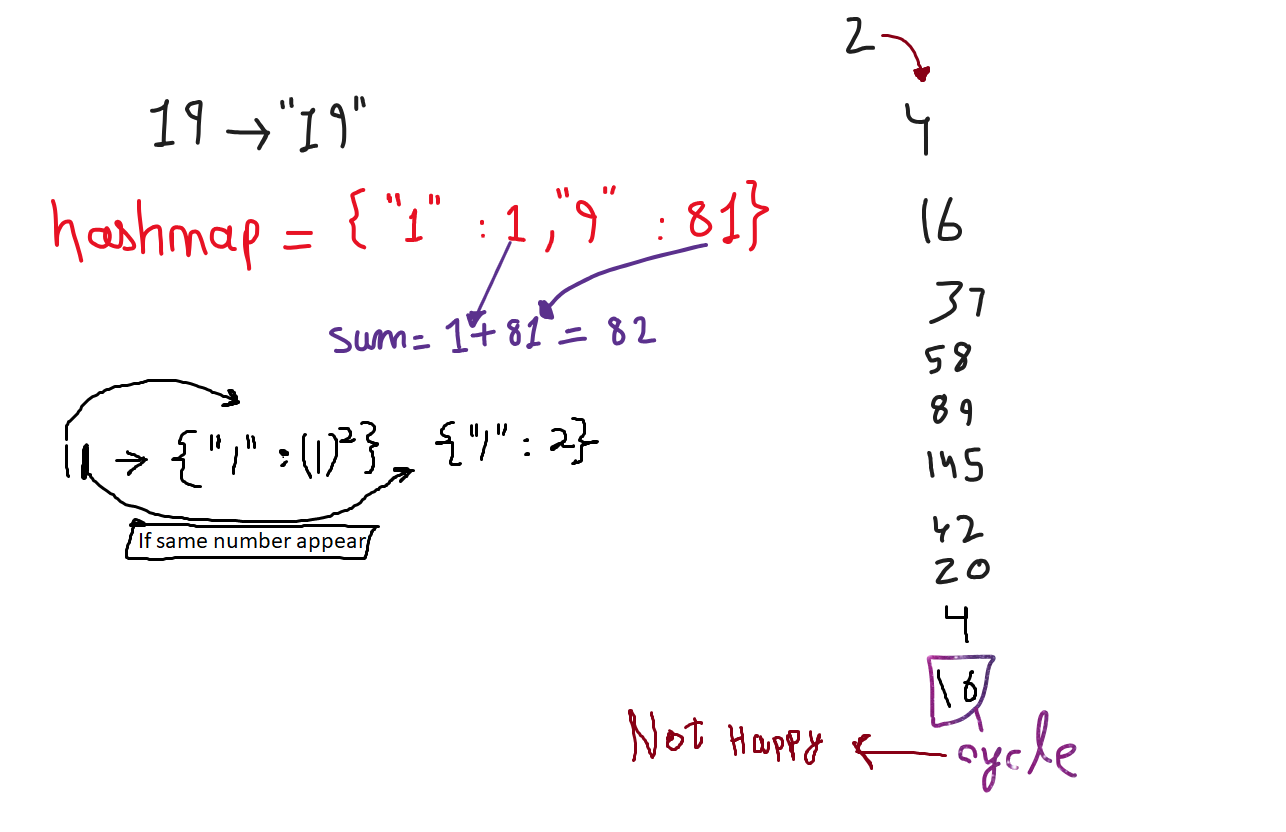 19 → "19"
hashmap = { "1" : 1, "9" : 81}
sum = 1 + 81 = 82
11 → { "1" : (1)² } { "1" : 2}
If same number appear
2
4
16
37
58
89
145
42
20
4
16
cycle
Not Happy